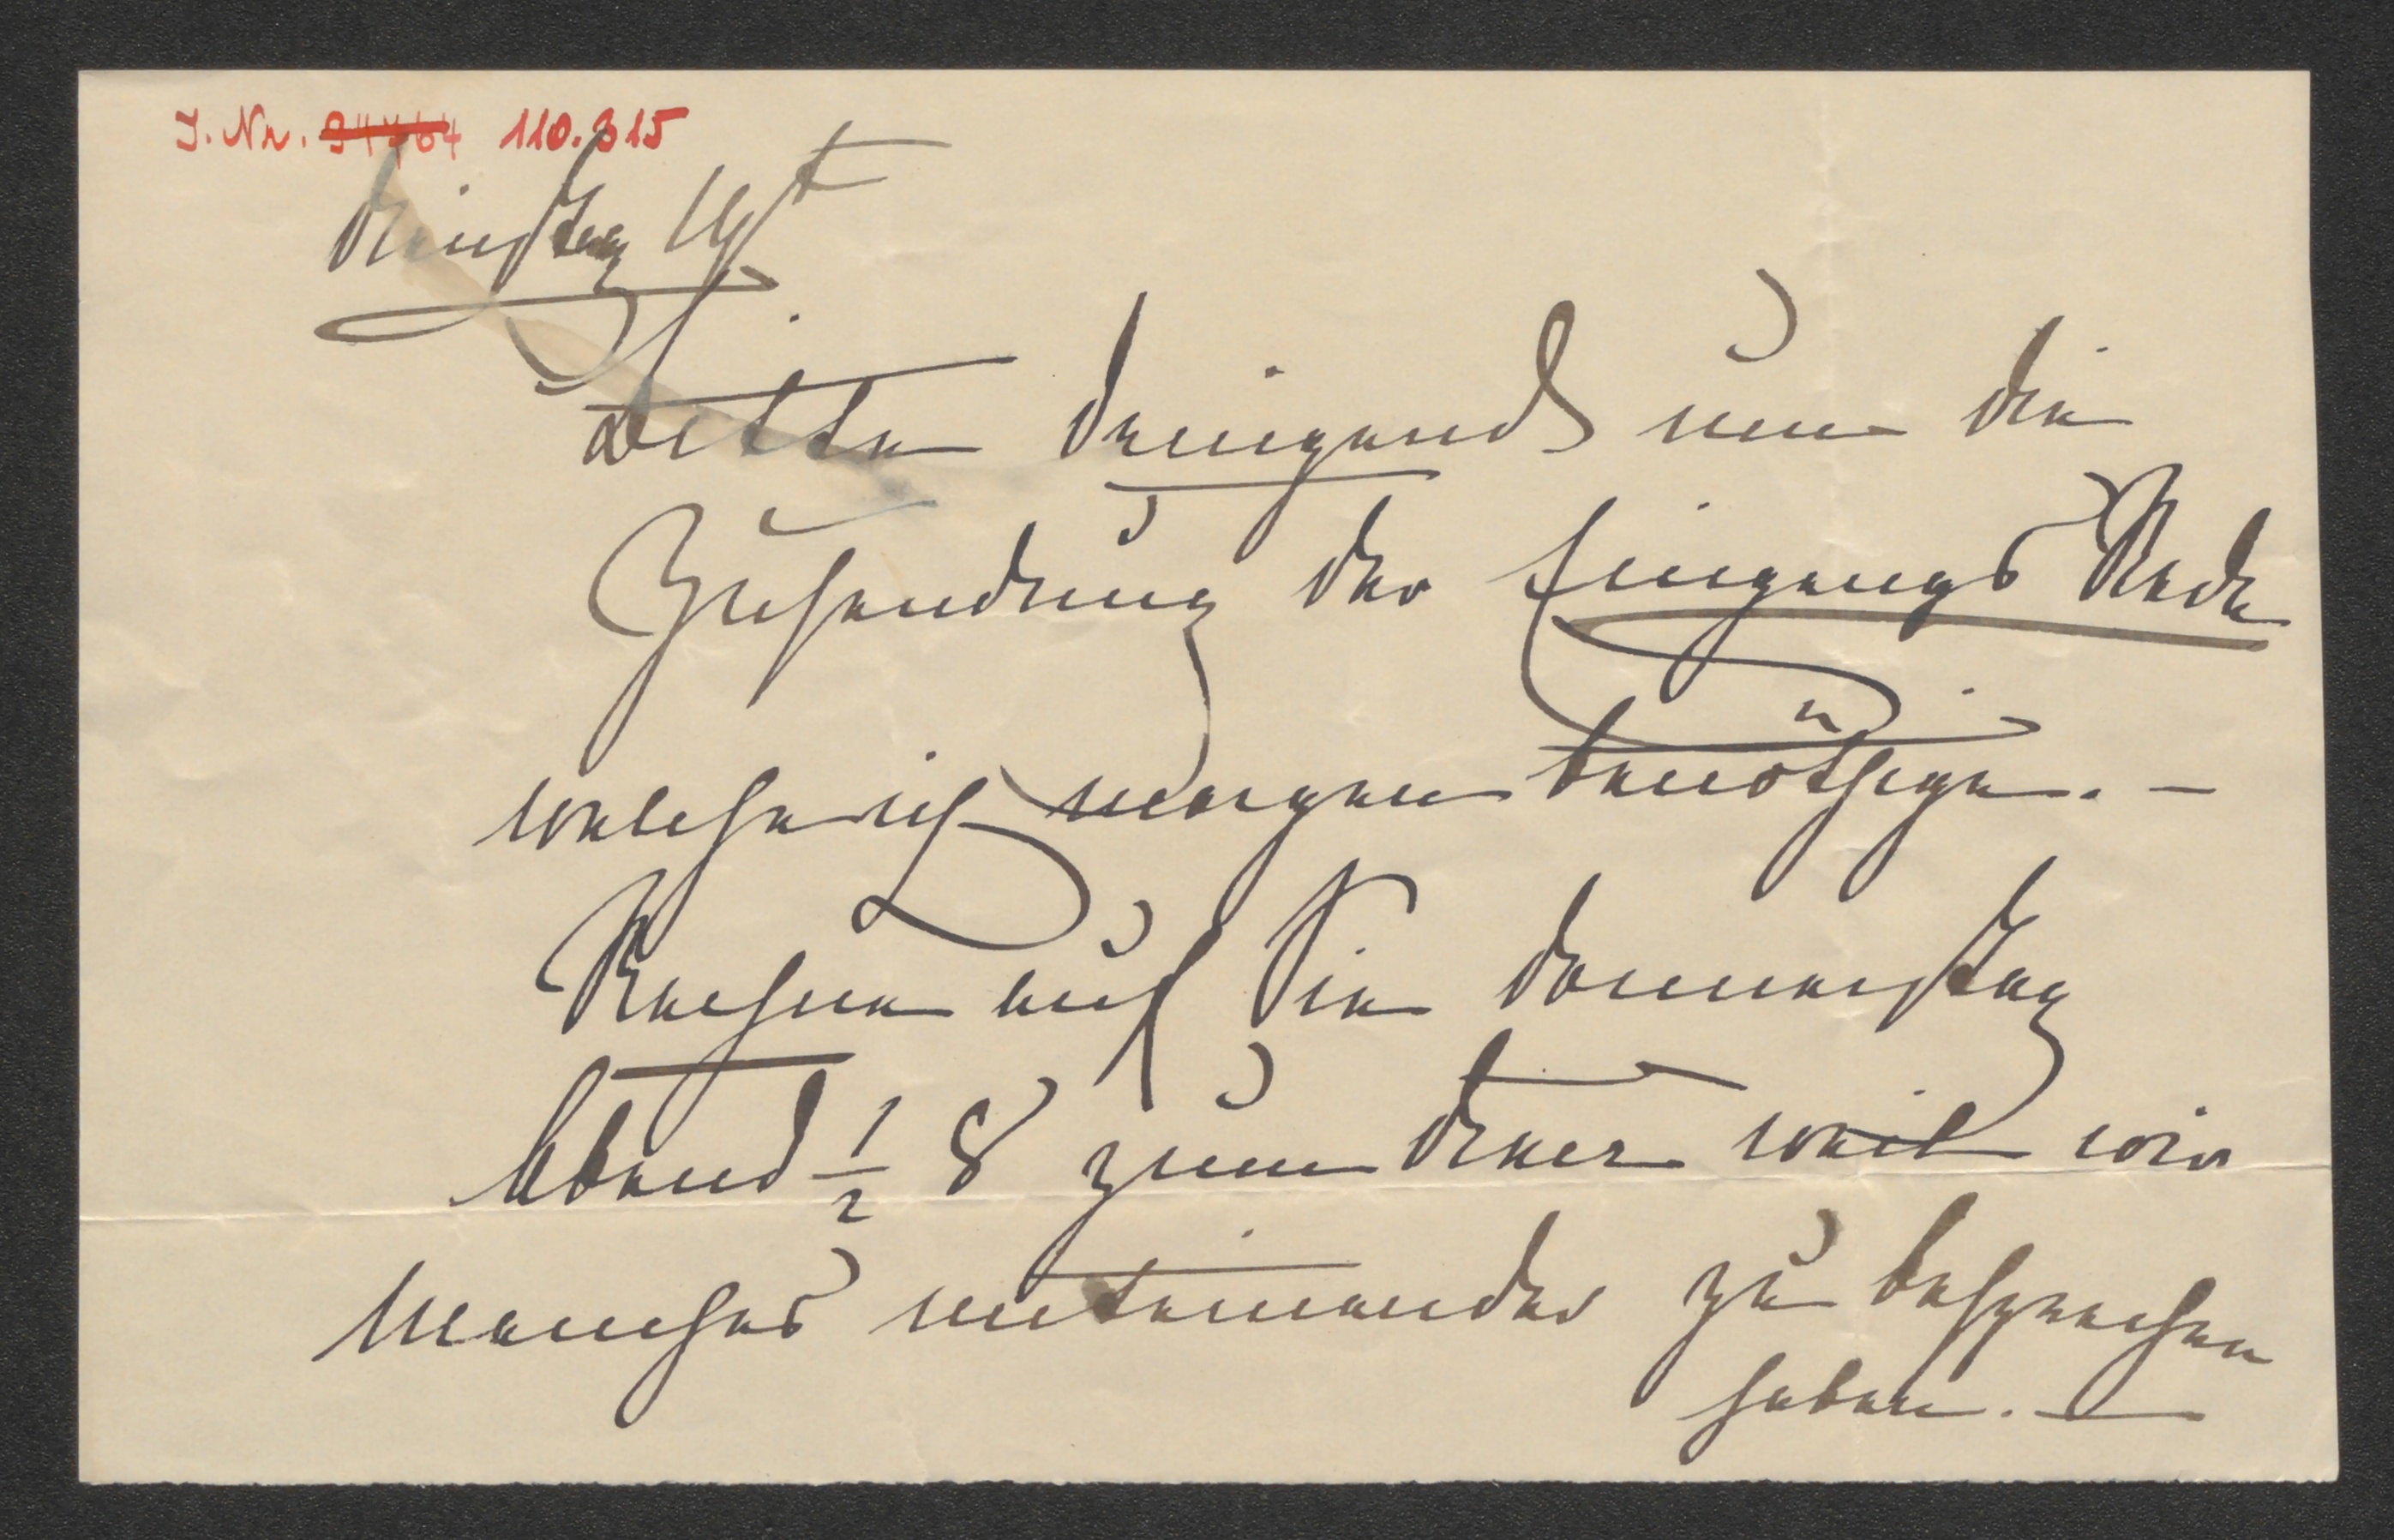 J. Nr. 94764 110.315
Dienstag 19t
Bitte dringend um die
Zusendung der Eingangs Rede
welche ich morgen benöthige. –
Rechne auf Sie Donnerstag
Abend ½ 8 zum Thee weil wir
Manches miteinander zu besprechen
haben. –